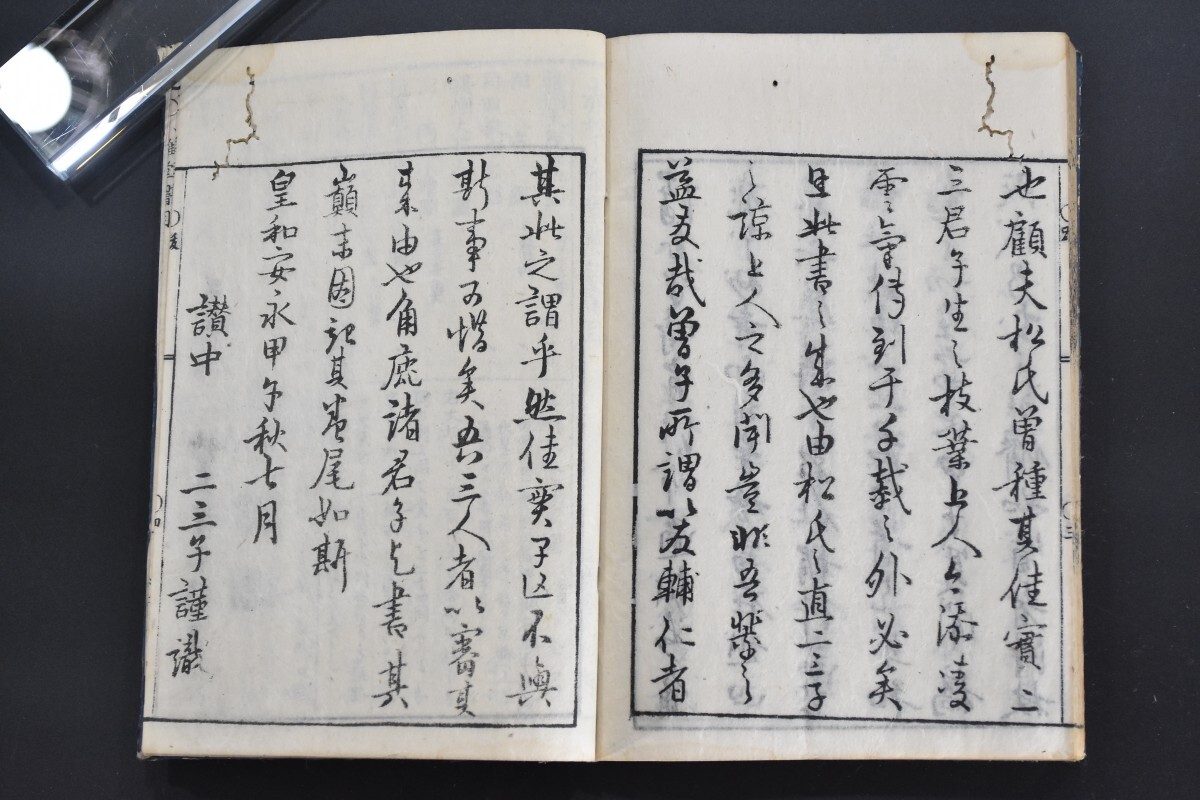 也顧夫松氏曽種其佳實二
三君子生之枝葉上人今添凌
雲之気傳到于千載之外必矣
且此書之成也由松氏之直二三子
之諒上人之多聞豈非吾黨之
益友哉曽子所謂以友輔仁者
其此之謂乎然佳實子已不與
斯事可惜矣吾三人者以審其
来由也角鹿諸君子乞書其
巓末因記其巻尾如斯
皇和安永甲午秋七月
讃中 二三子謹識